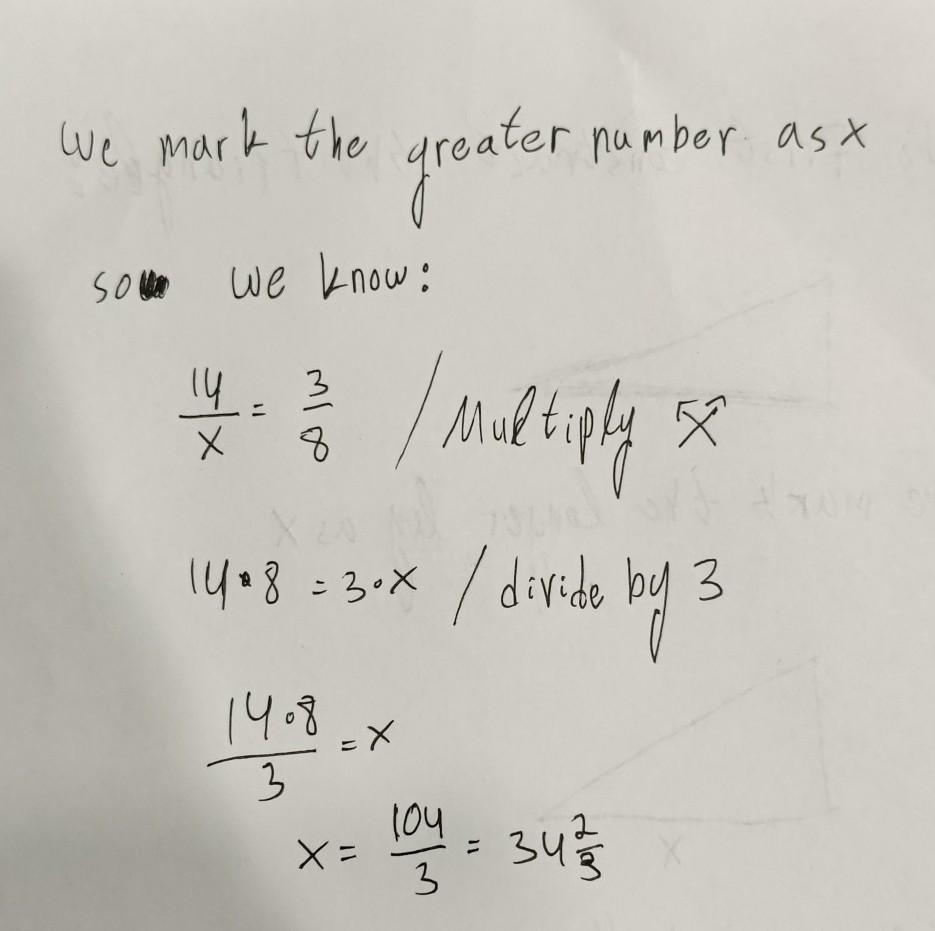 We mark the greater number as x
so we know:
14/x = 3/8 / Multiply
14•8 = 3•x / divide by 3
14•8/3 = x
x = 104/3 = 34 2/3